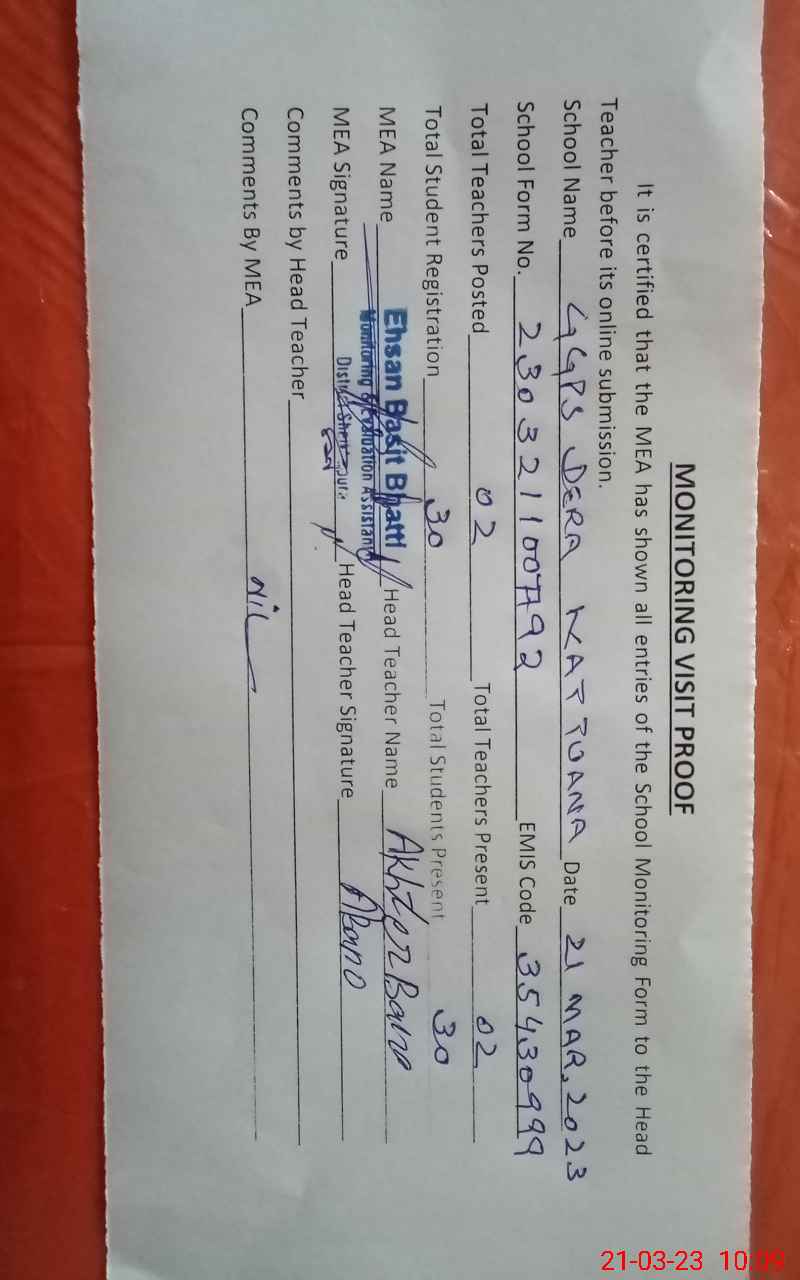 MONITORING VISIT PROOF
It is certified that the MEA has shown all entries of the School Monitoring Form to the Head
Teacher before its online submission.
School Name GGPS DERA KATTUANA Date 21 MAR, 2023
School Form No. 2303211007492 EMIS Code 35430999
Total Teachers Posted 02 Total Teachers Present 02
Total Student Registration 30 Total Students Present 30
MEA Name Ehsan Basit Bhatti Head Teacher Name Akhter Bano
Monitoring & Evaluation Assistant
MEA Signature District Sheikhupura Head Teacher Signature ABano
Comments by Head Teacher
Comments By MEA Nil
21-03-23 10:09